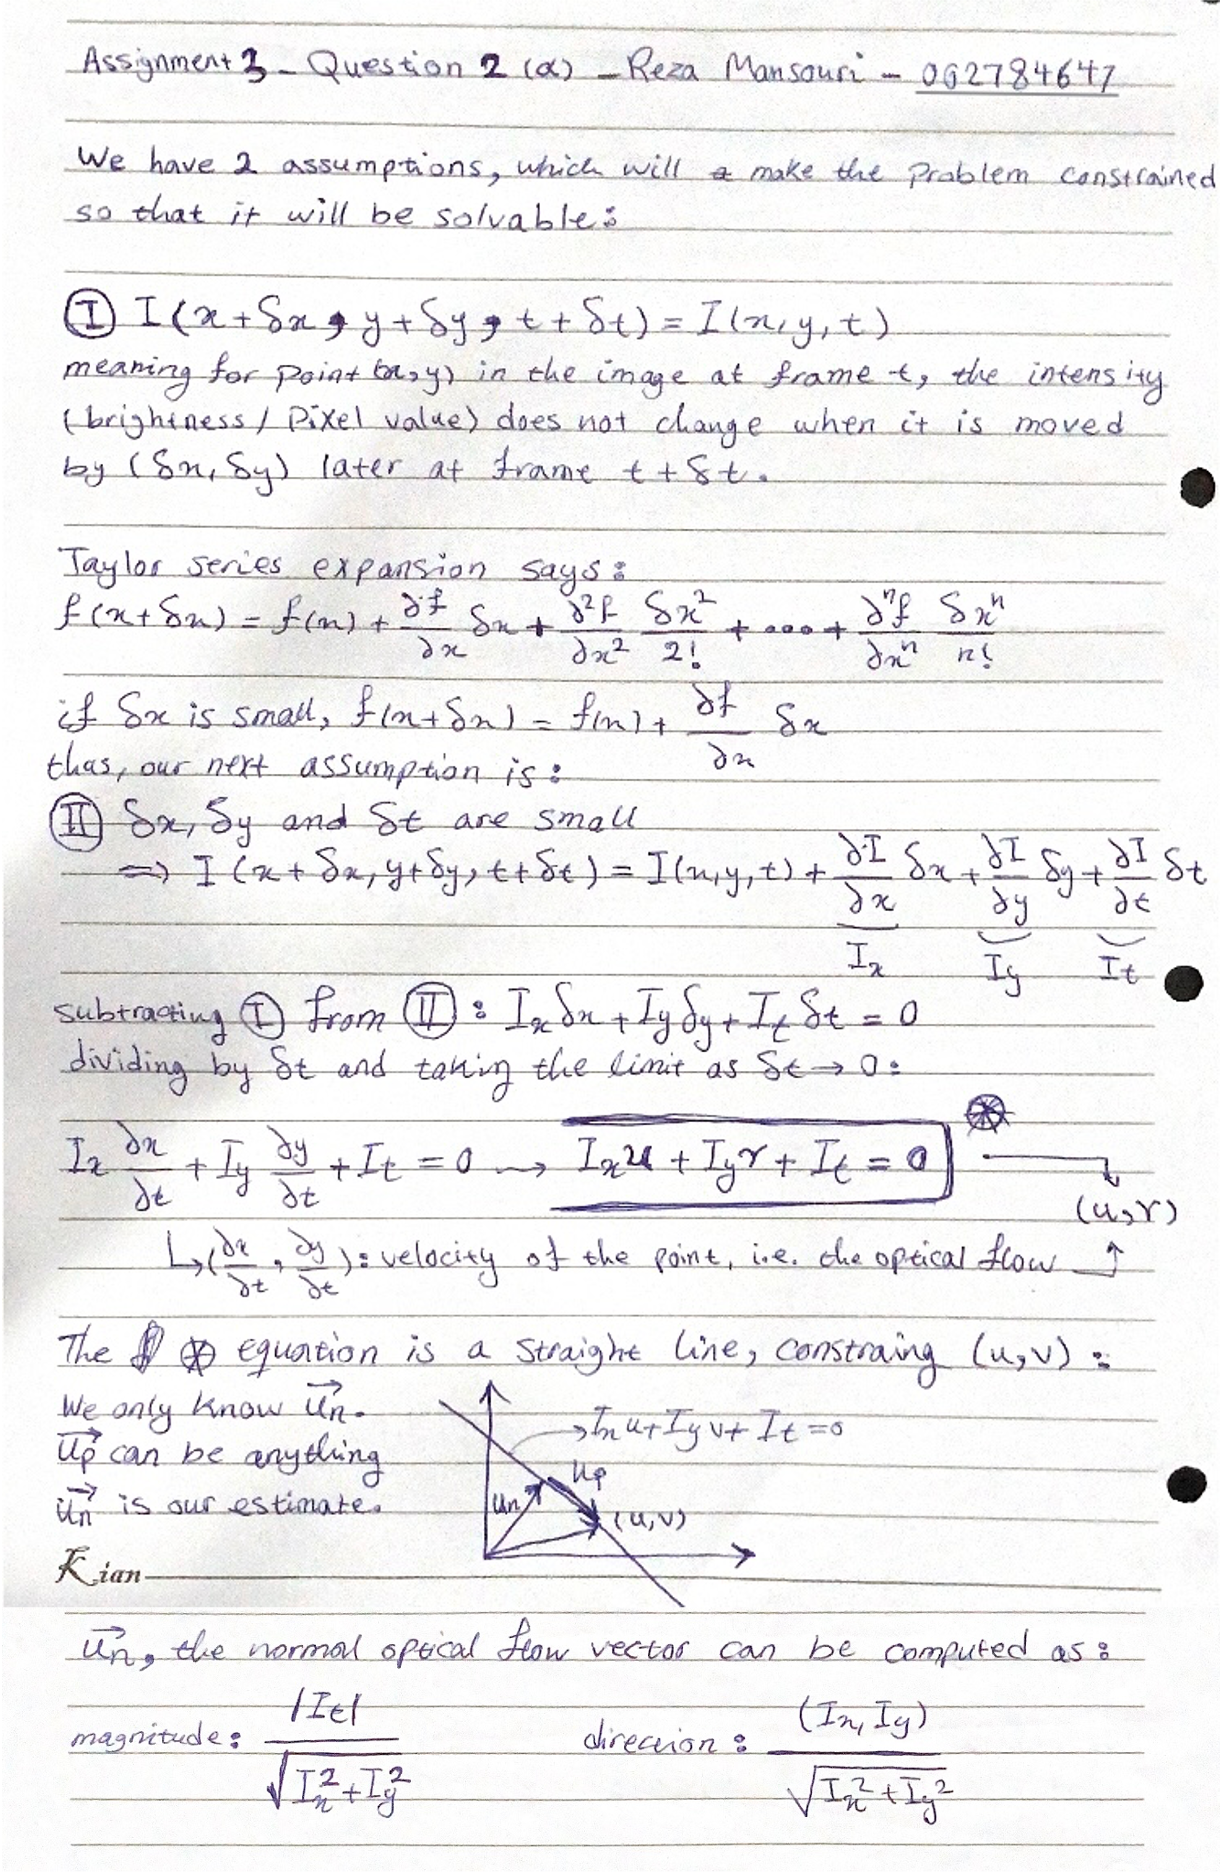 Assignment 3 - Question 2 (a) - Reza Mansouri - 002784647
We have 2 assumptions, which will make the problem constrained
so that it will be solvable:
Ⓘ I(x+δx, y+δy, t+δt) = I(x,y,t)
meaning for point (x,y) in the image at frame t, the intensity
(brightness / Pixel value) does not change when it is moved
by (δx, δy) later at frame t+δt.
Taylor series expansion says:
f(x+δx) = f(x) + ∂f/∂x δx + ∂²f/∂x² δx²/2! + ... + ∂ⁿf/∂xⁿ δxⁿ/n!
if δx is small, f(x+δx) = f(x) + ∂f/∂x δx
thus, our next assumption is:
(II) δx, δy and δt are small
⇒ I(x+δx, y+δy, t+δt) = I(x,y,t) + ∂I/∂x δx + ∂I/∂y δy + ∂I/∂t δt
Ix Iy It
subtracting Ⓘ from (II): Ix δx + Iy δy + It δt = 0
dividing by δt and taking the limit as δt → 0:
Ix ∂x/∂t + Iy ∂y/∂t + It = 0 → Ix u + Iy v + It = 0 ⊛
(u,v)
↳ (∂x/∂t, ∂y/∂t): velocity of the point, i.e. the optical flow ↑
The ⊛ equation is a straight line, constraing (u,v):
We only know u⃗n.
u⃗p can be anything
u⃗n is our estimate.
Ix u + Iy v + It = 0
up
un
(u,v)
Kian
u⃗n, the normal optical flow vector can be computed as:
magnitude: |It| / √(Ix² + Iy²) direction: (Ix, Iy) / √(Ix² + Iy²)